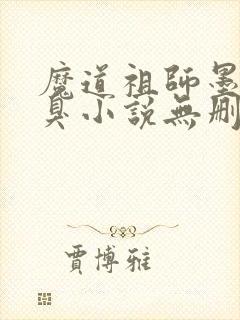 魔道祖師墨
臭小說無刪
賈博雅